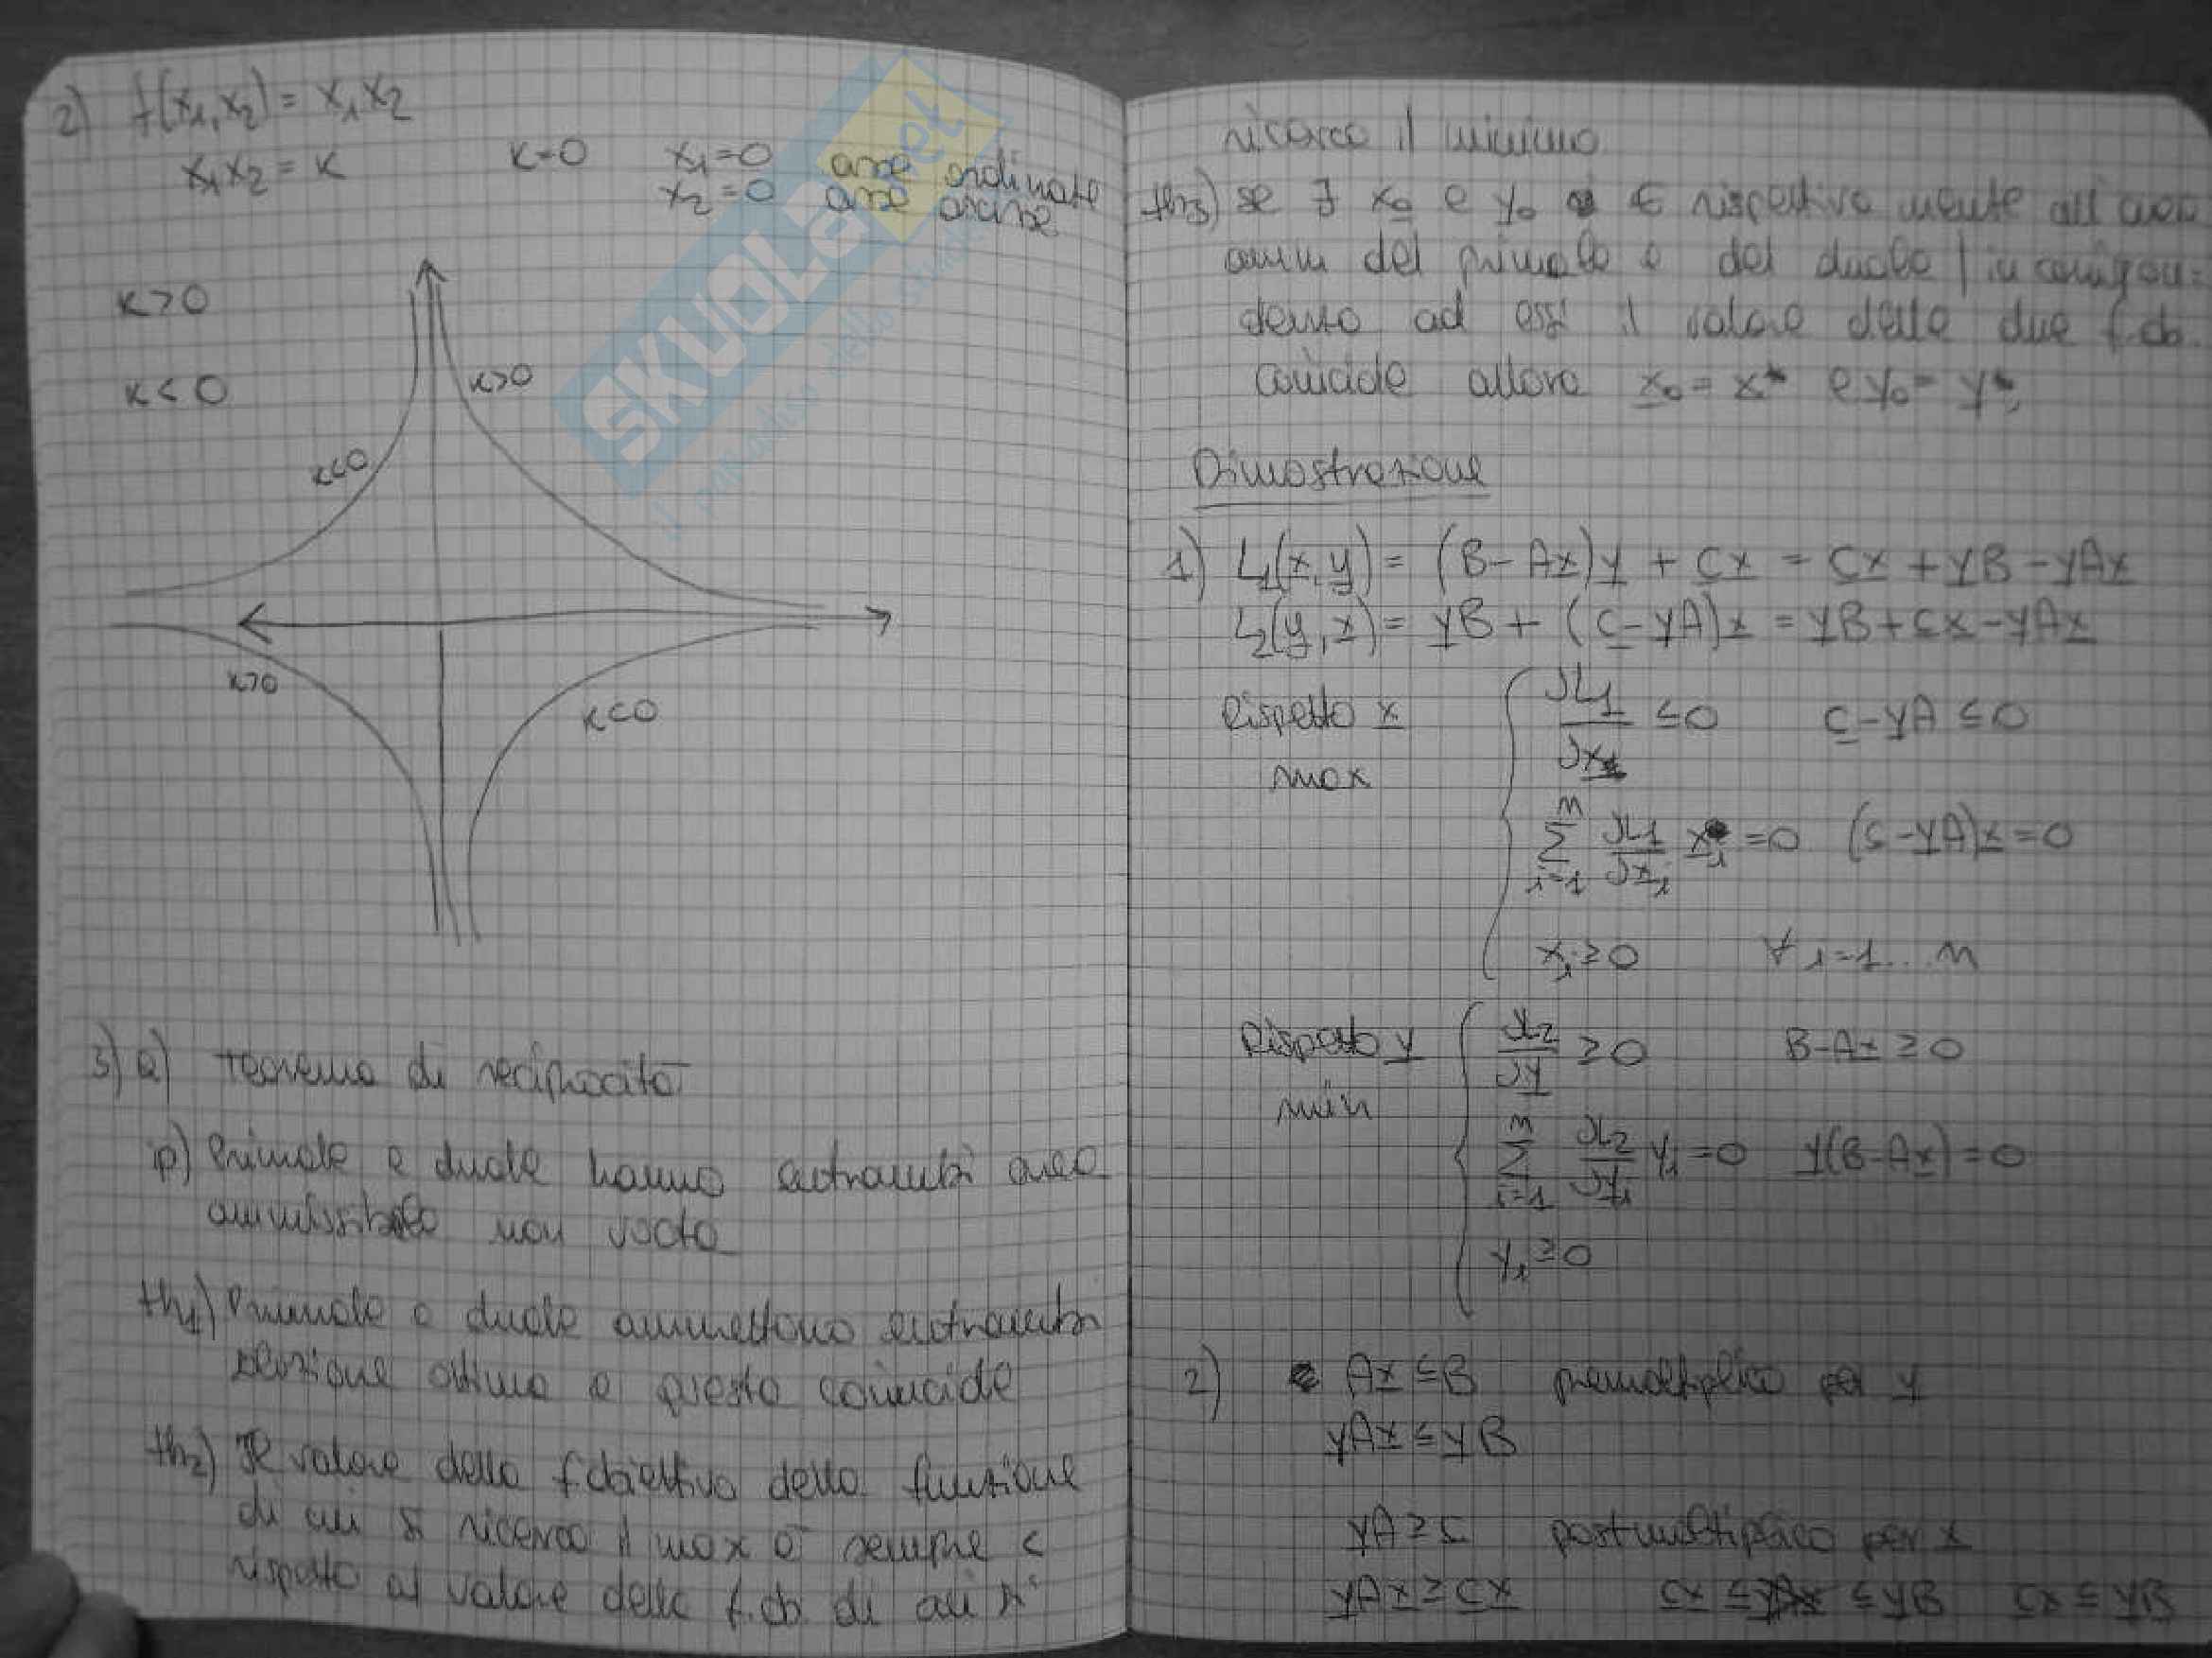 2) f(x₁,x₂) = x₁x₂
x₁x₂ = k
k=0 x₁=0 asse ordinate
x₂=0 asse ascisse
k>0
k<0
k<0
k>0
k>0
k<0
3) a) teorema di reciprocità
ip) Primale e duale hanno entrambi area
ammissibile non vuota
th₁) Primale e duale ammettono entrambi
soluzione ottima e questa coincide
th₂) Il valore della f.obiettivo della funzione
di cui si ricerca il max è sempre <
rispetto al valore della f.ob. di cui si
ricerca il minimo
th₃) se ∃ x₀ e y₀ ∈ rispettivamente all'area
amm del primale e del duale / in corrispon=
denza ad essi il valore delle due f.ob.
coincide allora x₀ = x* e y₀ = y*
Dimostrazione
1) L₁(x,y) = (B-Ax)y + cx = cx + yB - yAx
L₂(y,x) = yB + (c-yA)x = yB+cx-yAx
Rispetto x
max
∂L₁/∂x ≤0 c-yA ≤0
∑ᵢ₌₁ⁿ ∂L₁/∂xᵢ xᵢ =0 (c-yA)x=0
xᵢ≥0 ∀ i=1...n
Rispetto y
min
∂L₂/∂y ≥0 B-Ax ≥0
∑ᵢ₌₁ᵐ ∂L₂/∂yᵢ yᵢ =0 y(B-Ax)=0
yᵢ≥0
2) Ax ≤B premoltiplico per y
yAx ≤ yB
yA ≥ c postmoltiplico per x
yAx ≥ cx cx ≤ yAx ≤ yB cx ≤ yB
SKUOLA.net
il paradiso dello studente